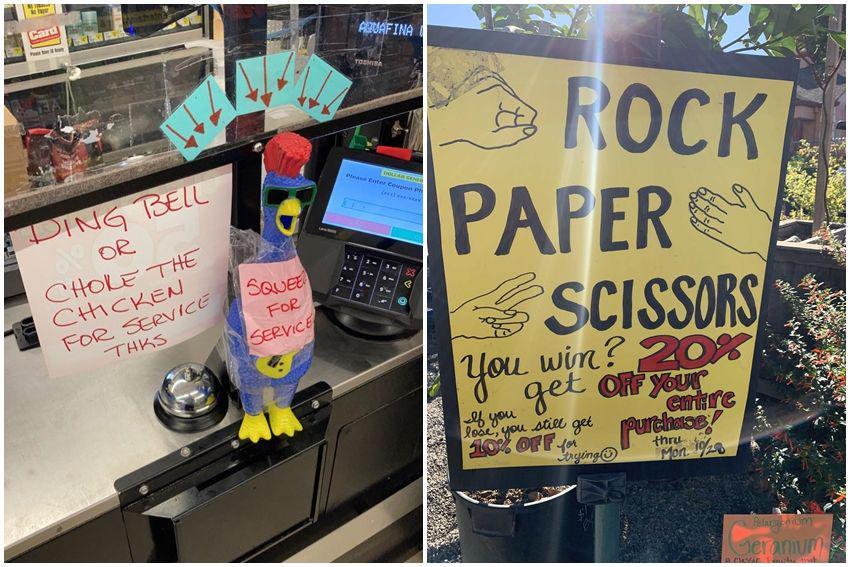 No Tax
No Vapor
Card
Please Have ID Ready
AQUAFINA
TOSHIBA
DING BELL
OR
CHOKE THE
CHICKEN
FOR SERVICE
THKS
SQUEEZE
FOR
SERVICE
DOLLAR GENERAL
Please Enter Coupon Ph
ROCK
PAPER
SCISSORS
You win? 20%
get OFF your
entire
purchase!
If you
lose, you still get
10% OFF for
trying
thru
Mon. 10/28
Pelargonium
Geranium